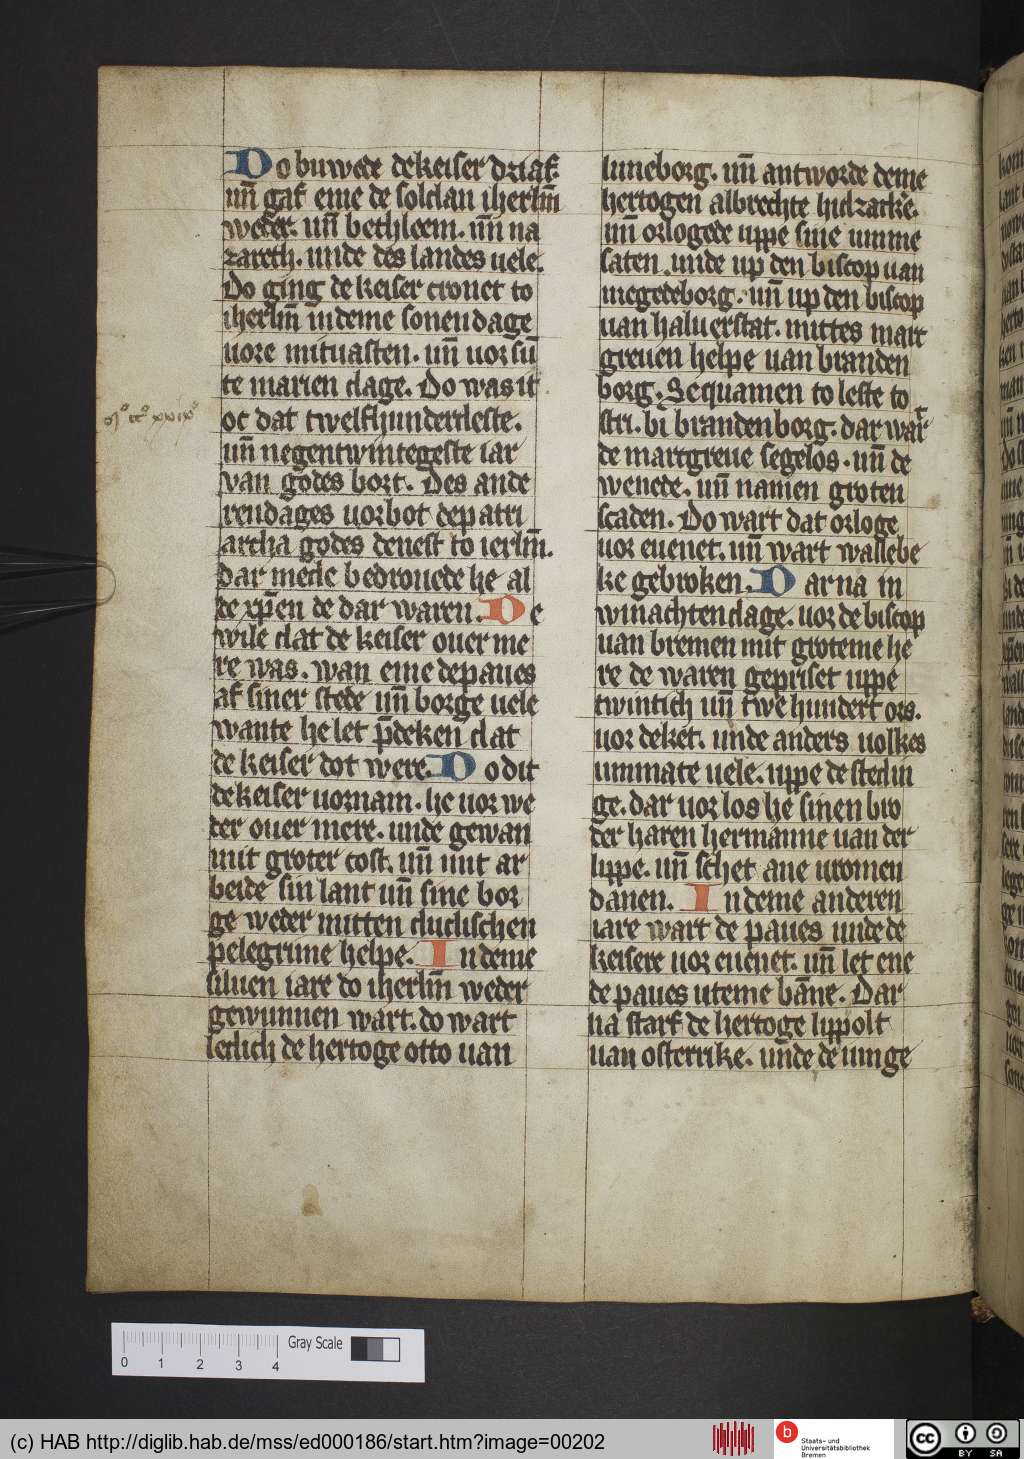 Do buwede de keiser Dziaf.
uñ gaf eme de soldan iherlm̄
weder. uñ bethleem. uñ na
zareth. unde des landes uele.
Do ging de keiser cronet to
iherlm̄ in deme sonendage
uore mituasten. uñ uor sū
te marien dage. Do was it
oc dat twelfhunderdeste.
uñ negentwintegeste iar
van godes bort. Des ande
rendages uorbot de patri
archa godes denest to ierlm̄.
dar mede bedrouede he al
de xp̄en de dar waren. De
wile dat de keiser ouer me
re was. wan eme de paues
af siner stede uñ borge uele
wante he let p̄deken dat
de keiser dot were. Do dit
de keiser uornam. he uor we
der ouer mere. unde gewan
mit groter cost. uñ mit ar
beide sin lant uñ sine bor
ge weder mitten dudischen
pelegrime helpe. In deme
siluen iare do iherlm̄ weder
gewunnen wart. do wart
ledich de hertoge otto uan
luneborg. uñ antworde deme
hertogen albrechte hidzacke.
uñ orlogede uppe sine umme
saten. unde up den biscop uan
megedeborg. uñ up den biscop
uan haluerstat. mittes mart
greuen helpe uan branden
borg. Se quamen to leste to
stri. bi brandenborg. dar wart
de martgreue segelos. uñ de
wenede. uñ namen groten
scaden. Do wart dat orloge
uor euenet. uñ wart wallebe
ke gebroken. Dar na in
winachten dage. uor de biscop
uan bremen mit groteme he
re de waren gepriset uppe
twintich uñ twe hundert ors.
uor deket. unde anders uolkes
ummate uele. uppe de stedin
ge. dar uor los he sinen bro
der haren hermanne uan der
lippe. uñ schet ane uromen
danen. In deme anderen
iare wart de paues unde de
keisere uor euenet. uñ let ene
de paues uteme bāne. Dar
na starf de hertoge lippolt
uan osterrike. unde de iunge
0 1 2 3 4
Gray Scale
(c) HAB http://diglib.hab.de/mss/ed000186/start.htm?image=00202
b
Staats- und
Universitätsbibliothek
Bremen
cc
BY SA